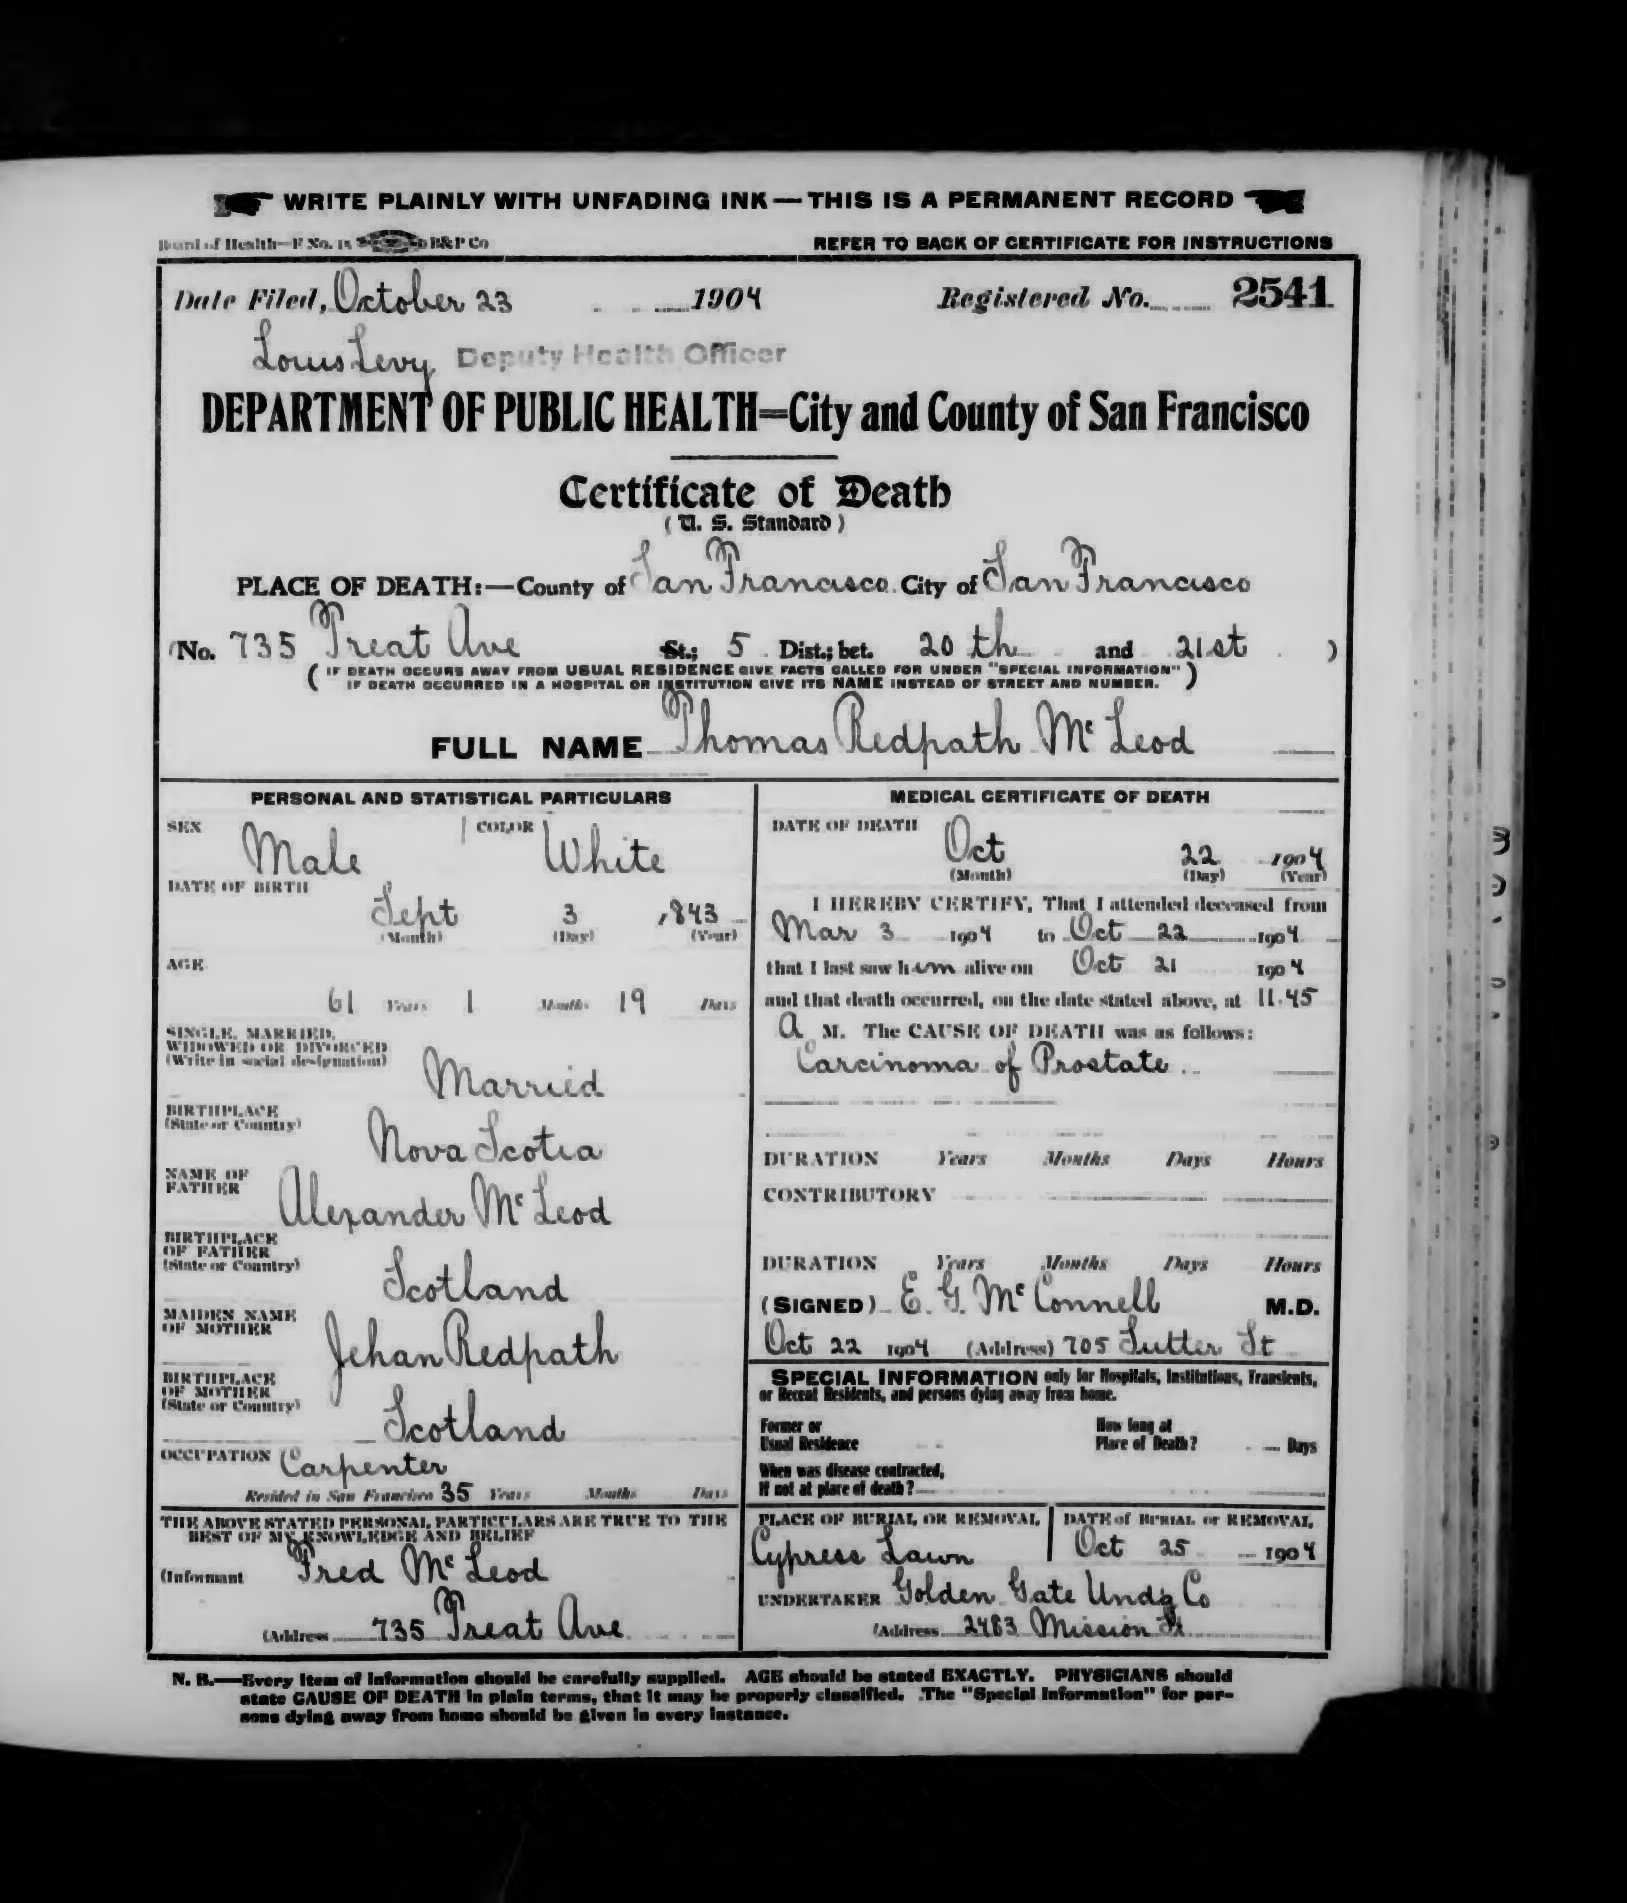 WRITE PLAINLY WITH UNFADING INK — THIS IS A PERMANENT RECORD
Board of Health—F No. 15 B&P Co
REFER TO BACK OF CERTIFICATE FOR INSTRUCTIONS
Date Filed, October 23 1904 Registered No. 2541
Louis Levy Deputy Health Officer
DEPARTMENT OF PUBLIC HEALTH=City and County of San Francisco
Certificate of Death
(U. S. Standard)
PLACE OF DEATH:—County of San Francisco City of San Francisco
(No. 735 Treat Ave St.; 5 Dist.; bet. 20th and 21st )
( IF DEATH OCCURS AWAY FROM USUAL RESIDENCE GIVE FACTS CALLED FOR UNDER "SPECIAL INFORMATION" )
IF DEATH OCCURRED IN A HOSPITAL OR INSTITUTION GIVE ITS NAME INSTEAD OF STREET AND NUMBER.
FULL NAME Thomas Redpath Mc Leod
PERSONAL AND STATISTICAL PARTICULARS
SEX Male COLOR White
DATE OF BIRTH
Sept 3 1843
(Month) (Day) (Year)
AGE
61 Years 1 Months 19 Days
SINGLE, MARRIED,
WIDOWED OR DIVORCED
(Write in social designation)
Married
BIRTHPLACE
(State or Country)
Nova Scotia
NAME OF
FATHER
Alexander Mc Leod
BIRTHPLACE
OF FATHER
(State or Country)
Scotland
MAIDEN NAME
OF MOTHER
Jehan Redpath
BIRTHPLACE
OF MOTHER
(State or Country)
Scotland
OCCUPATION Carpenter
Resided in San Francisco 35 Years Months Days
THE ABOVE STATED PERSONAL PARTICULARS ARE TRUE TO THE
BEST OF MY KNOWLEDGE AND BELIEF
(Informant Fred Mc Leod
(Address 735 Treat Ave
MEDICAL CERTIFICATE OF DEATH
DATE OF DEATH
Oct 22 1904
(Month) (Day) (Year)
I HEREBY CERTIFY, That I attended deceased from
Mar 3 1904 to Oct 22 1904
that I last saw him alive on Oct 21 1904
and that death occurred, on the date stated above, at 11.45
A M. The CAUSE OF DEATH was as follows:
Carcinoma of Prostate
DURATION Years Months Days Hours
CONTRIBUTORY
DURATION Years Months Days Hours
(SIGNED) E. G. Mc Connell M.D.
Oct 22 1904 (Address) 705 Sutter St
SPECIAL INFORMATION only for Hospitals, Institutions, Transients,
or Recent Residents, and persons dying away from home.
Former or
Usual Residence
How long at
Place of Death? Days
When was disease contracted,
If not at place of death?
PLACE OF BURIAL OR REMOVAL
Cypress Lawn
DATE of BURIAL or REMOVAL
Oct 25 1904
UNDERTAKER Golden Gate Undg Co
(Address 2483 Mission St
N. B.—Every item of information should be carefully supplied. AGE should be stated EXACTLY. PHYSICIANS should
state CAUSE OF DEATH in plain terms, that it may be properly classified. The "Special Information" for per-
sons dying away from home should be given in every instance.